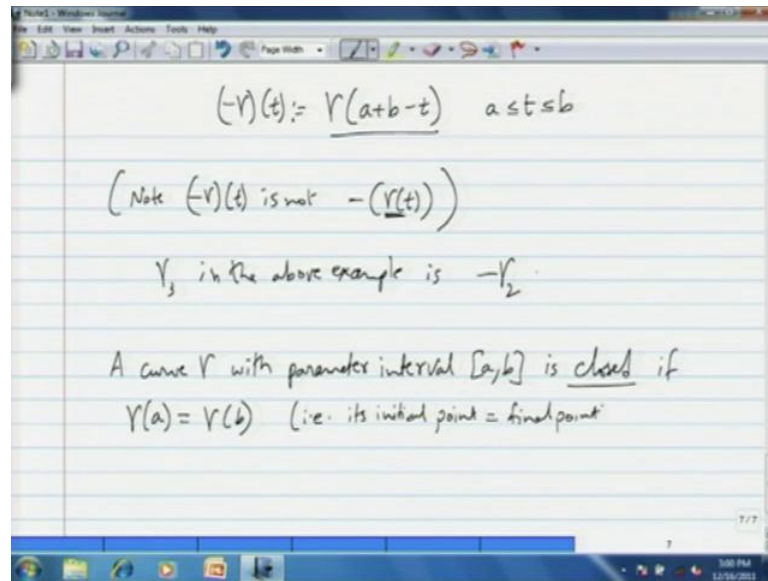 Note1 - Windows Journal
File Edit View Insert Actions Tools Help
Page Width
(-γ)(t) := γ(a+b-t) a ≤ t ≤ b
(Note (-γ)(t) is not -(γ(t)))
γ₃ in the above example is -γ₂.
A curve γ with parameter interval [a,b] is closed if
γ(a) = γ(b) (i.e. its initial point = final point
7/7
7
3:00 PM
12/16/2011